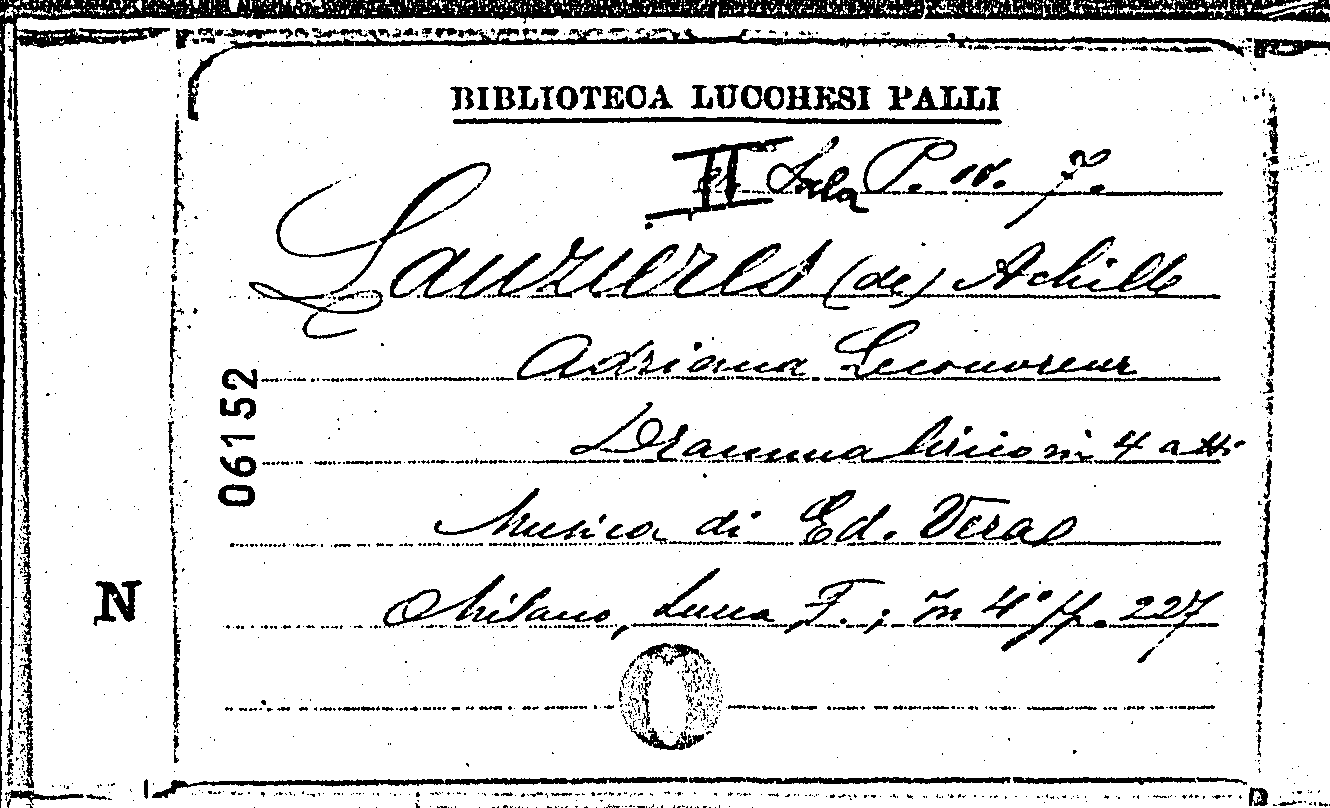 BIBLIOTECA LUCCHESI PALLI
II Sala P. IV. 7.
Lauzieres (de) Achille
Adriana Lecouvreur
Dramma lirico in 4 atti
Musica di Ed. Vera
06152
N
Milano, Lucca F.; In 4° pp. 227